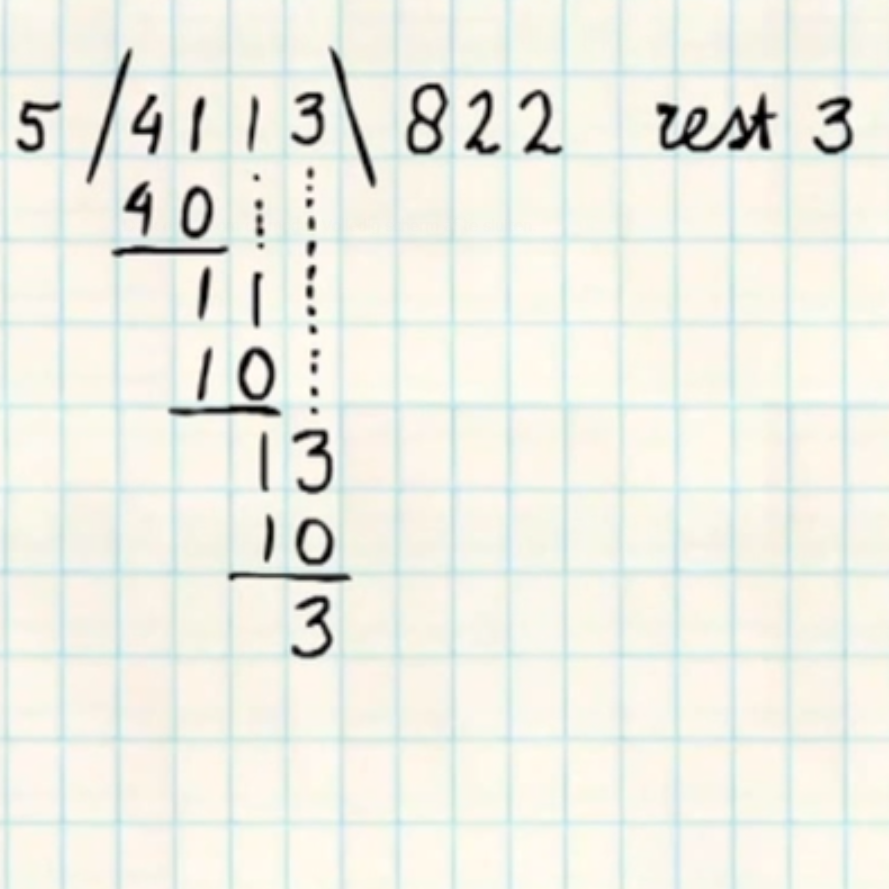 5 / 4 1 1 3 \ 8 2 2 rest 3
4 0
1 1
1 0
1 3
1 0
3